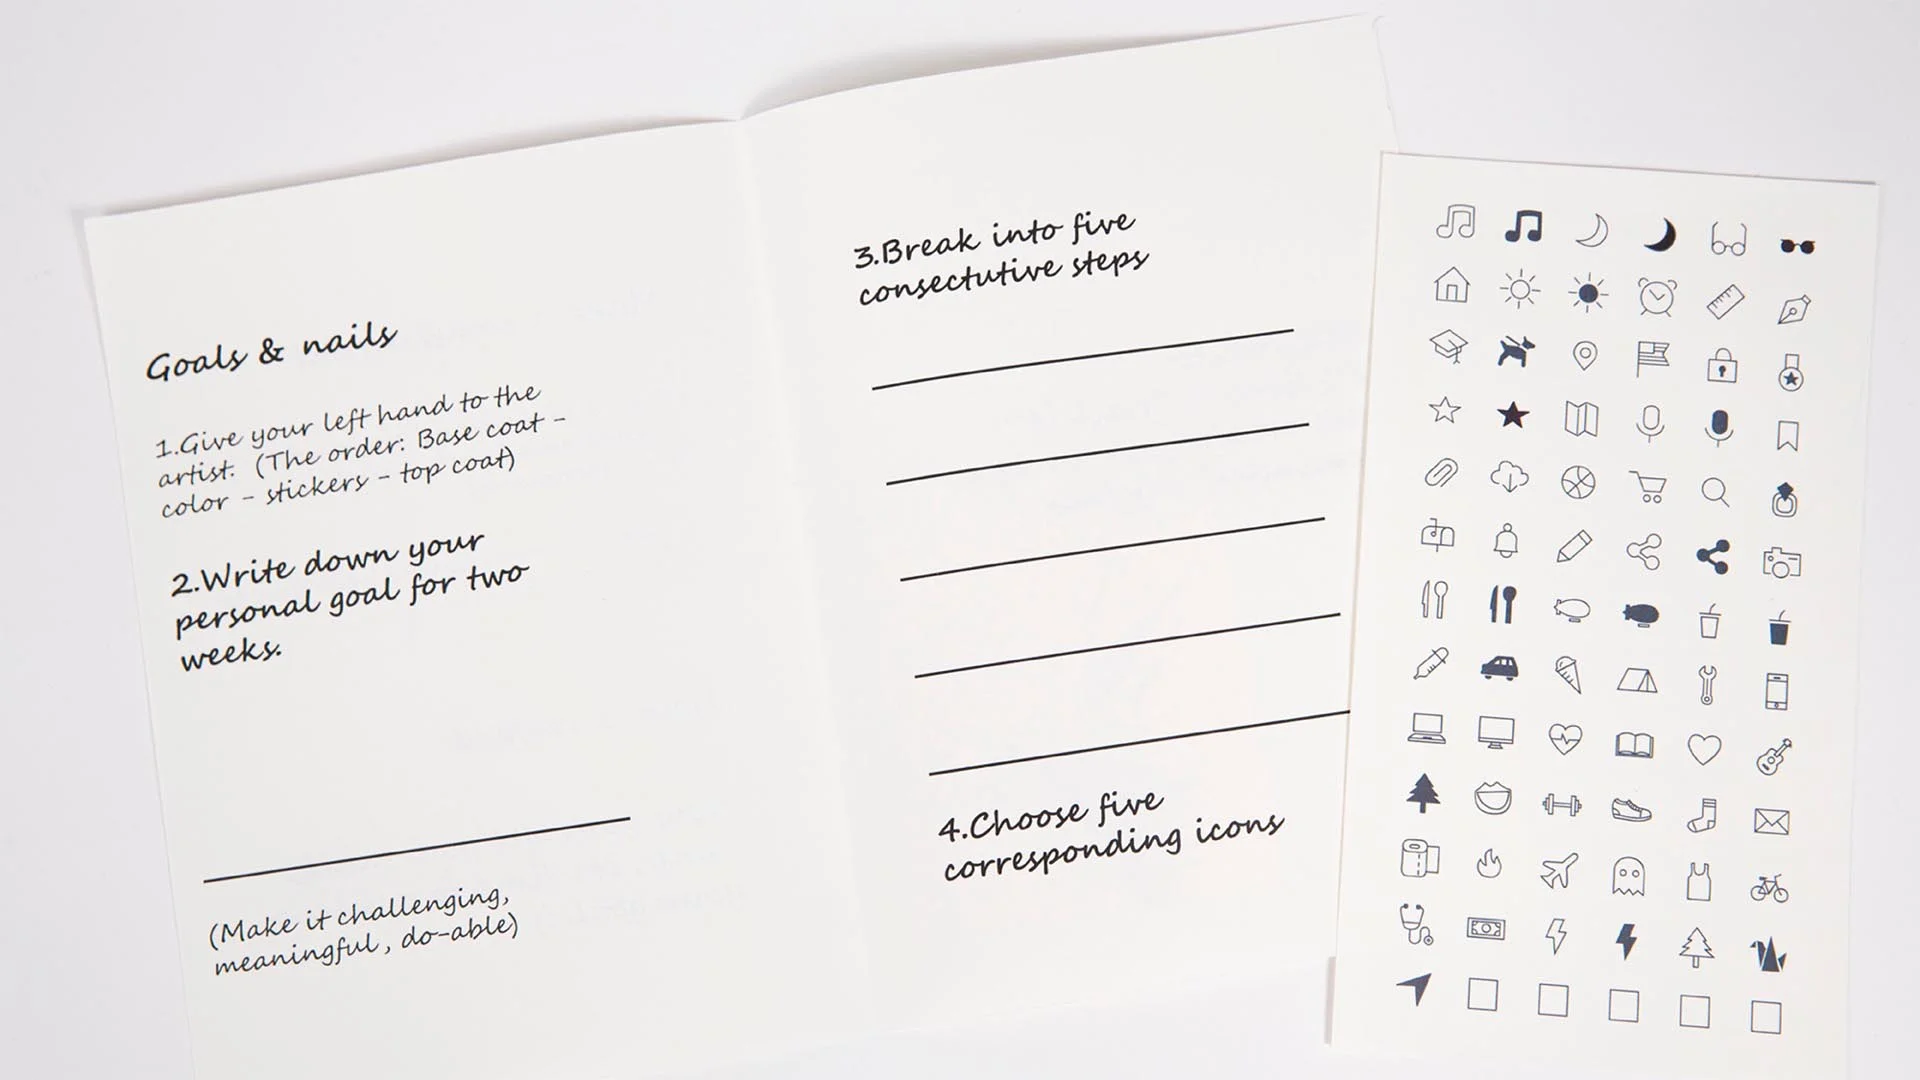 Goals & nails
1.Give your left hand to the
artist. (The order: Base coat -
color - stickers - top coat)
2.Write down your
personal goal for two
weeks.
(Make it challenging,
meaningful, do-able)
3.Break into five
consectutive steps
4.Choose five
corresponding icons